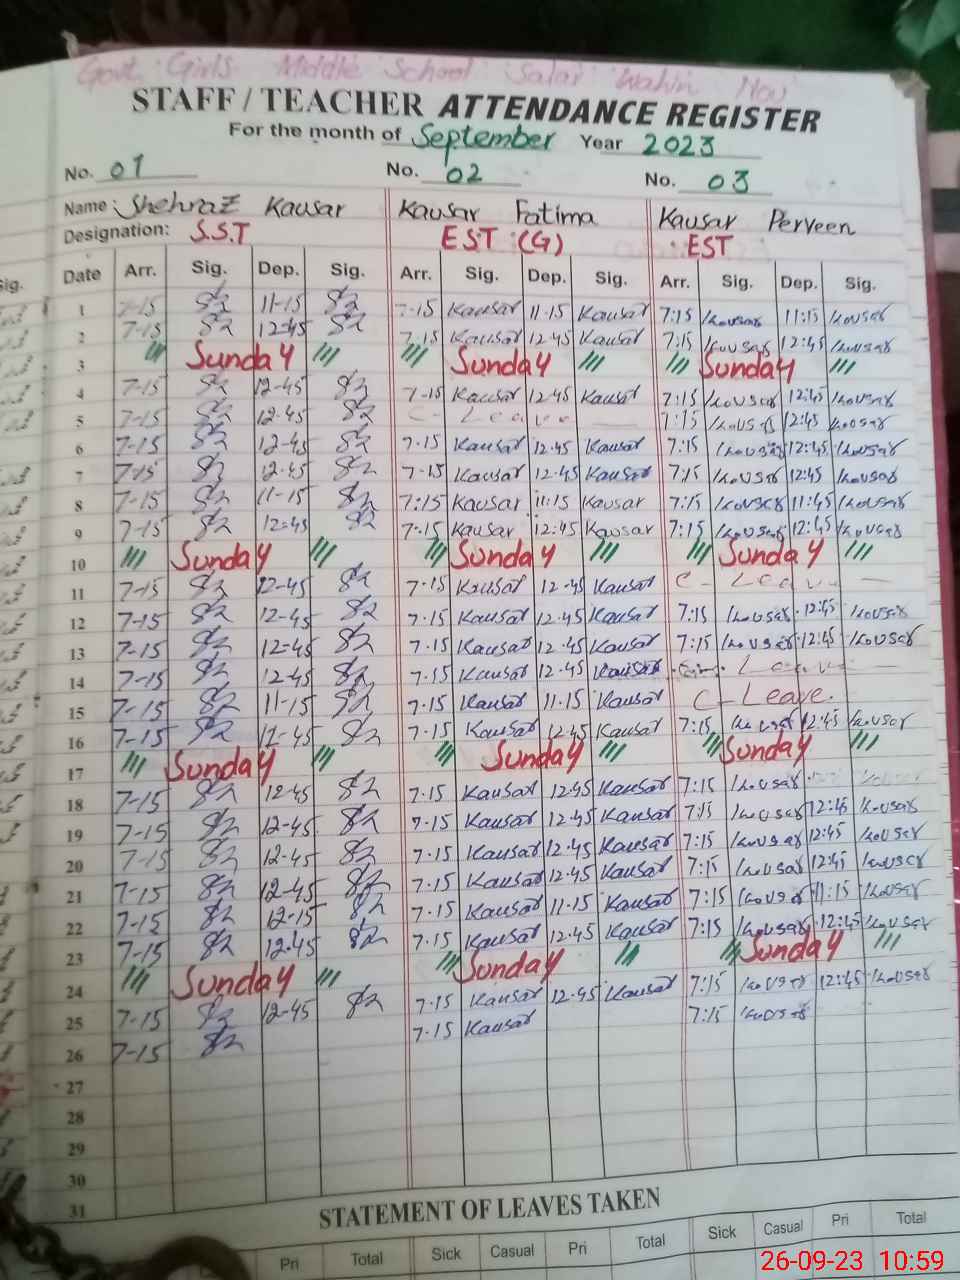 Govt. Girls Middle School Salar Wahin Nou
STAFF / TEACHER ATTENDANCE REGISTER
For the month of September Year 2023
No. 01 No. 02 No. 03
Name: Shehnaz Kausar Kausar Fatima Kausar Perveen
Designation: S.S.T EST (G) EST
Date Arr. Sig. Dep. Sig. Arr. Sig. Dep. Sig. Arr. Sig. Dep. Sig.
1 7-15 11-15 7-15 Kausar 11-15 Kausar 7:15 Kousar 11:15 Kousar
2 7-15 12-45 7.15 Kausar 12-45 Kausar 7:15 Kousar 12:45 Kousar
3 Sunday Sunday Sunday
4 7-15 12-45 7-15 Kausar 12-45 Kausar 7:15 Kousar 12:45 Kousar
5 7-15 12-45 C - Leave 7:15 Kousar 12:45 Kousar
6 7-15 12-45 7.15 Kausar 12.45 Kausar 7:15 Kousar 12:45 Kousar
7 7-15 12-45 7-15 Kausar 12-45 Kausar 7:15 Kousar 12:45 Kousar
8 7-15 11-15 7:15 Kausar 11:15 Kausar 7:15 Kousar 11:45 Kousar
9 7-15 12-45 7.15 Kausar 12:45 Kausar 7:15 Kousar 12:45 Kousar
10 Sunday Sunday Sunday
11 7-15 12-45 7.15 Kausar 12-45 Kausar C - Leave
12 7-15 12-45 7.15 Kausar 12.45 Kausar 7:15 Kousar 12:45 Kousar
13 7-15 12-45 7.15 Kausar 12.45 Kausar 7:15 Kousar 12:45 Kousar
14 7-15 12-45 7.15 Kausar 12-45 Kausar Leave
15 7-15 11-15 7.15 Kausar 11.15 Kausar C - Leave.
16 7-15 12-45 7.15 Kausar 12.45 Kausar 7:15 Kousar 12:45 Kousar
17 Sunday Sunday Sunday
18 7-15 12-45 7.15 Kausar 12.45 Kausar 7:15 Kousar
19 7-15 12-45 7.15 Kausar 12.45 Kausar 7:15 Kousar 12:45 Kousar
20 7-15 12-45 7.15 Kausar 12.45 Kausar 7:15 Kousar 12:45 Kousar
21 7-15 12-45 7.15 Kausar 12.45 Kausar 7:15 Kousar 12:45 Kousar
22 7-15 12-15 7.15 Kausar 11-15 Kausar 7:15 Kousar 11:15 Kousar
23 7-15 12-45 7.15 Kausar 12.45 Kausar 7:15 Kousar 12:45 Kousar
24 Sunday Sunday Sunday
25 7-15 12-45 7.15 Kausar 12.45 Kausar 7:15 Kousar 12:45 Kousar
26 7-15 7.15 Kausar 7:15 Kousar
27
28
29
30
31
STATEMENT OF LEAVES TAKEN
Pri Total Sick Casual Pri Total Sick Casual Pri Total
26-09-23 10:59